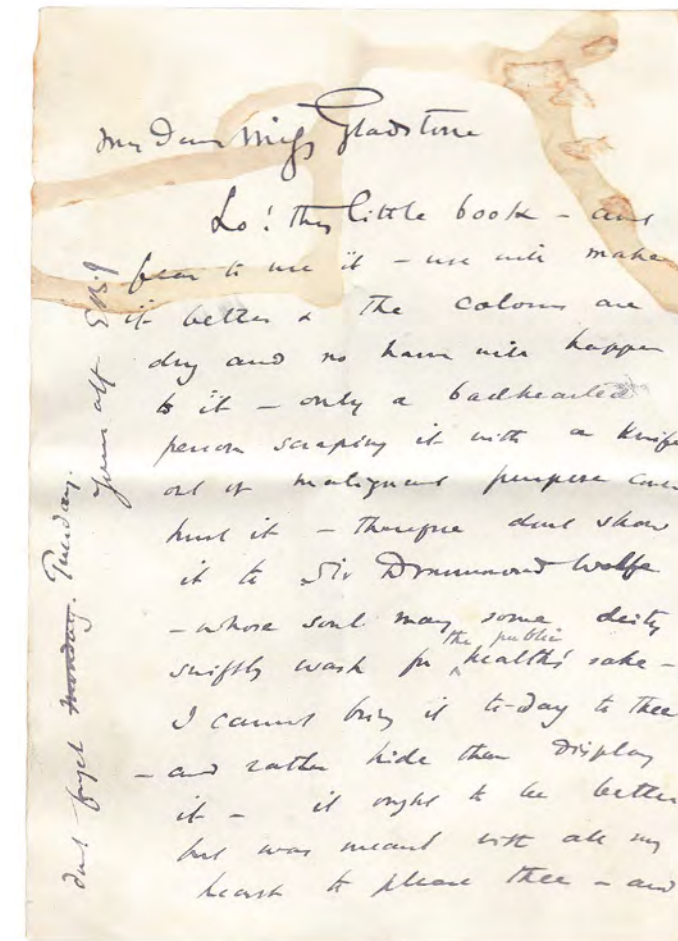 My Dear Miss Gladstone
Lo! this little book – and
fear to use it – use will make
it better & the colours are
dry and no harm will happen
to it – only a badhearted
person scraping it with a Knife
out of malignant purpose could
hurt it – therefore dont show
it to Sir Drummond Wolfe
– whose soul may some deity
swiftly wash for the public health's sake –
I cannot bring it to-day to thee
– and rather hide than Display
it – it ought to be better
but was meant with all my
heart to please thee – and
dont forget Monday. Tuesday.
Your aff EBJ